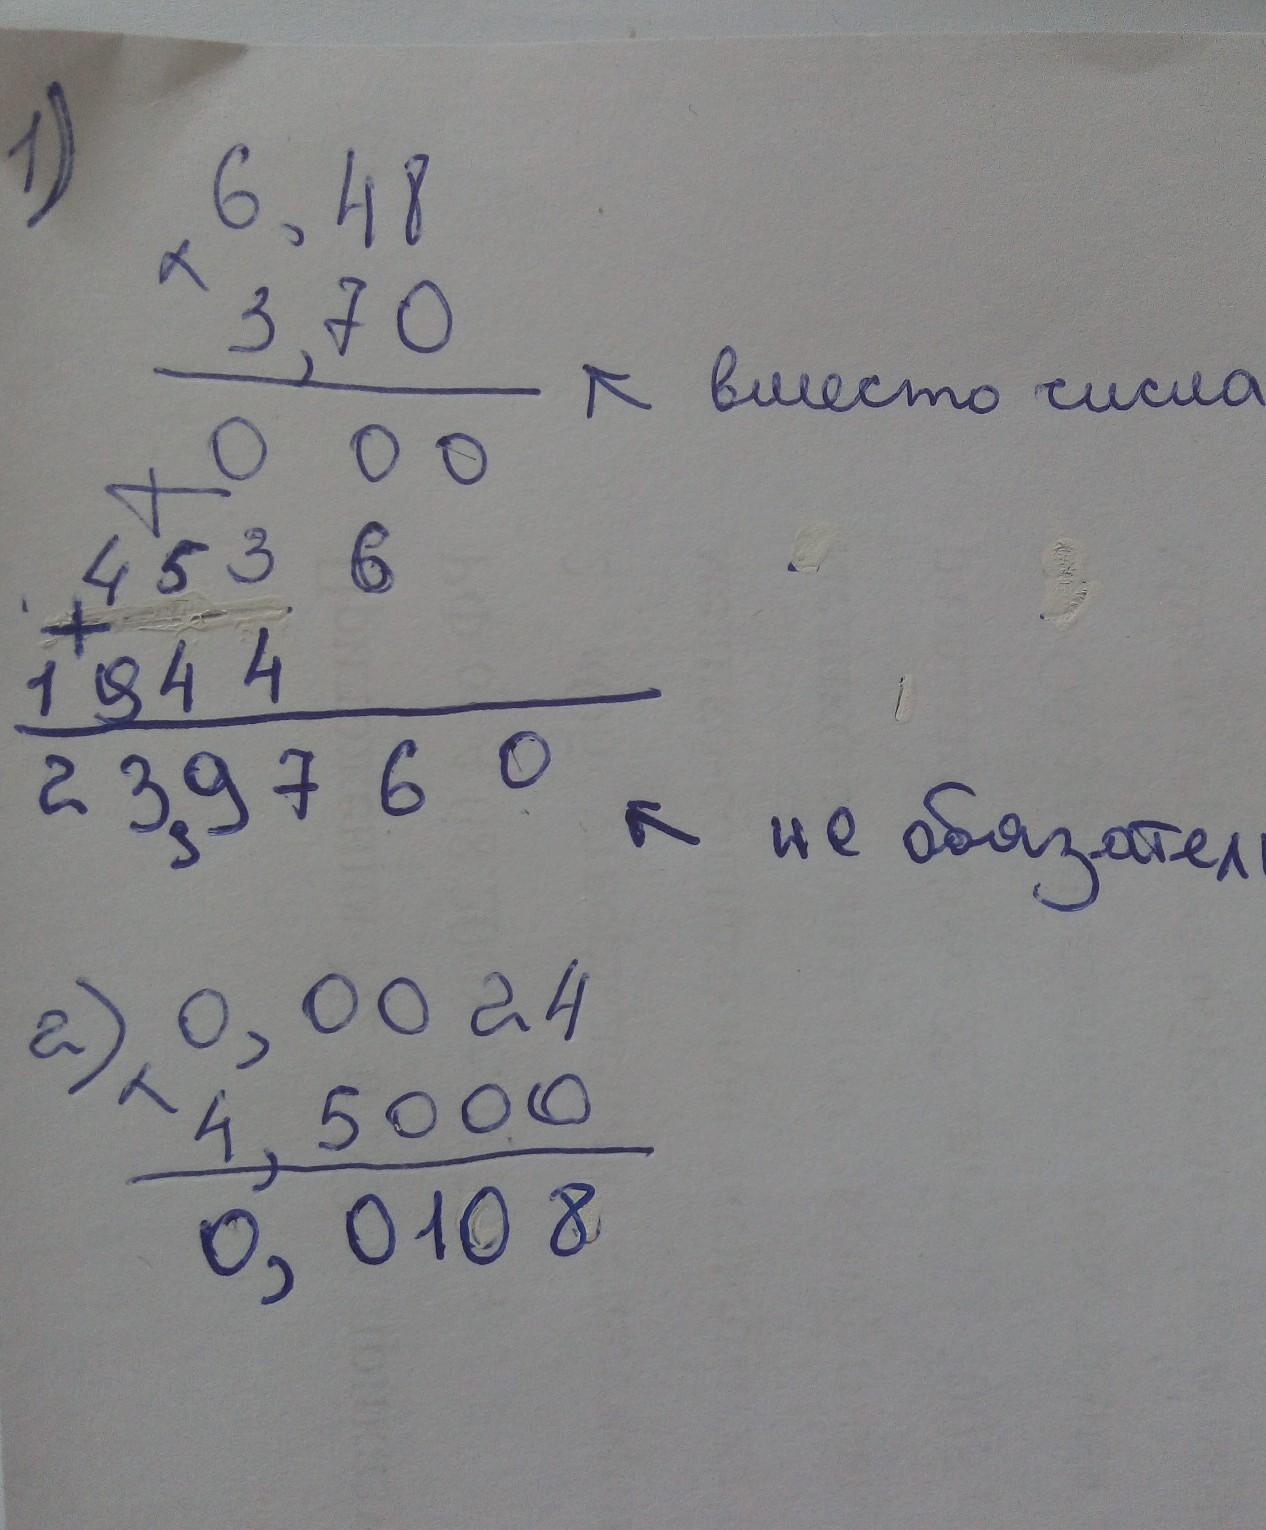 1)
6,48
×
3,70
вместо числа
0 00
+
453 6
+
1944
23,9760
не обязател
2) 0,0024
×
4,5000
0,0108